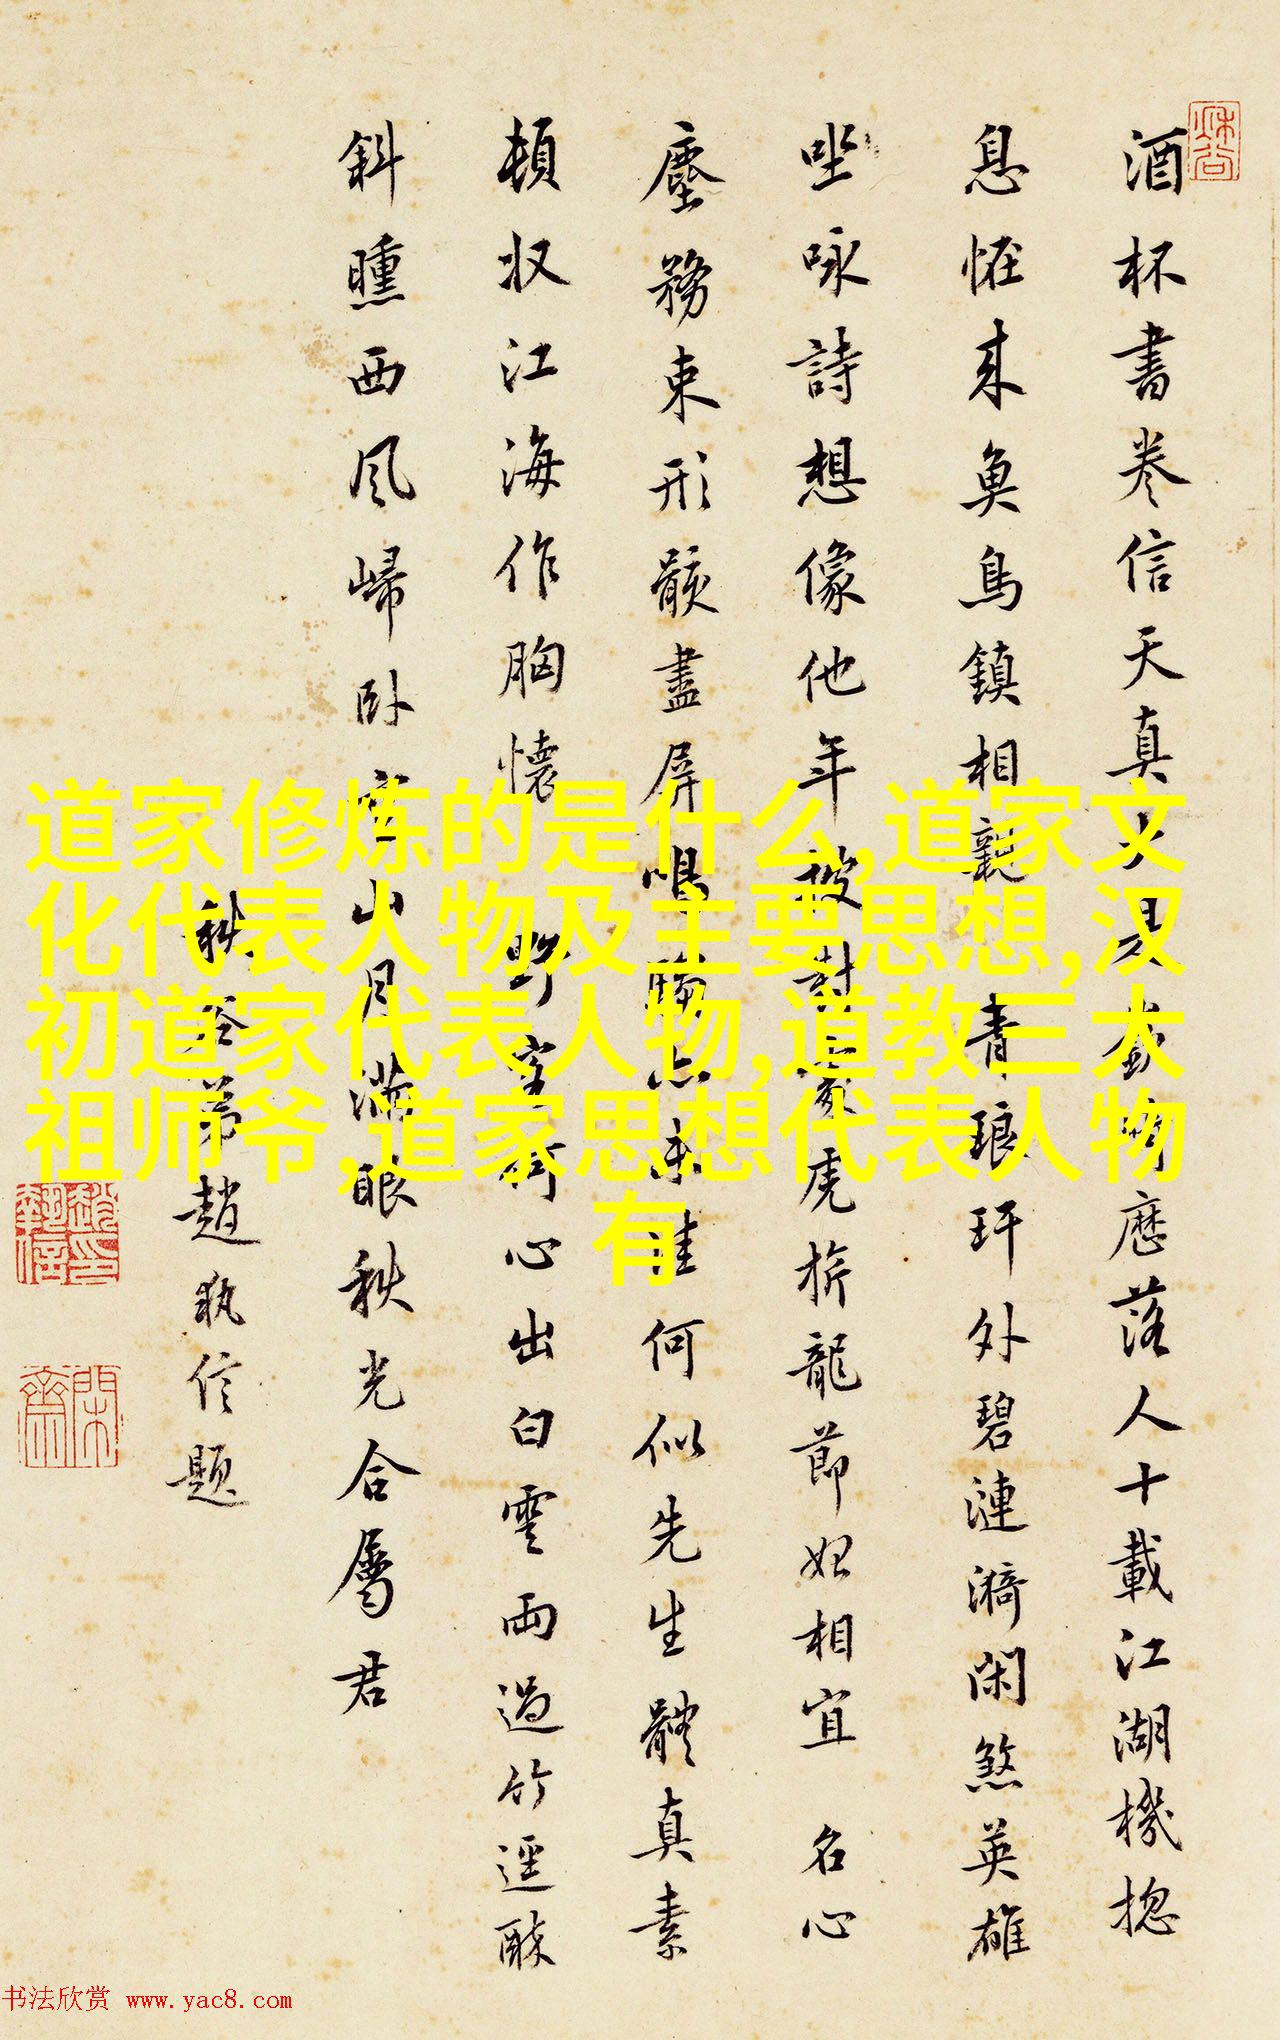 道家修炼的是什么,道家文
化代表人物及主要思想,汉
初道家代表人物,道教三大
祖师爷,道家思想代表人物
有
酒杯書卷信天真大是嶔落人十載江湖機捴
息怪来魚鳥鎮相親 青琅玕外碧漣漪閑煞英雄
坐咏詩想像他年披對虎旂龍節相宜 名心
塵務束形骸盡屏鳴未佳何似先生體真素
頓収江海作胸懷 野心出白雲雨過竹逕酥
斜曛西风歸卧空山月滿眼秋光合屬君
秋谷弟趙执信題
书法欣赏 www.yac8.com